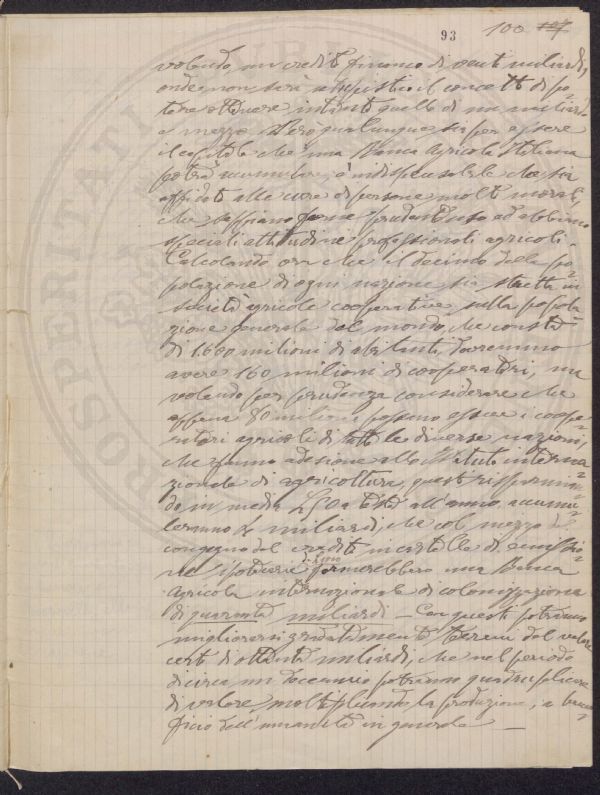 93 100 107
volendo, un credito finanzo di venti miliardi,
onde non sarà il concetto di po=
tere ottenere intanto quello di un miliardo
e mezzo. Però qualunque sia per essere
il capitale che una Banca Agricola Italiana
potrà accumulare, è indispensabile che sia
affidato alle cure di persone molto morali,
che sappiano farne prudente uso ed abbiano
speciali attitudini professionali agricole.
Calcolando ora che il decimo della po=
polazione di ogni nazione sia stretta in
società agricole cooperative, sulla popola=
zione generale del mondo, che consta
di 1.600 milioni di abitanti, dovremmo
avere 160 milioni di cooperatori, ma
volendo per prudenza considerare che
appena 80 milioni possano essere i coope=
ratori agricoli di tutte le diverse nazioni,
che fanno adesione all' Istituto interna=
zionale di agricoltura, questi risparmian=
do in media L 50 a testa all'anno, accumu=
leranno 4 miliardi, che col mezzo del
congegno del credito in cartelle di emissio=
ne ipotecarie formerebbero una Banca
Agricola internazionale di colonizzazione
di quaranta miliardi — Con questi potranno
migliorarsi gradatamente terreni del valore
cert di ottanta miliardi, che nel periodo
di circa un dodicennio potranno quadruplicare
di valore, moltiplicando la produzione, a bene=
ficio dell'umanità in generale —
PROSPERITATI PUBL